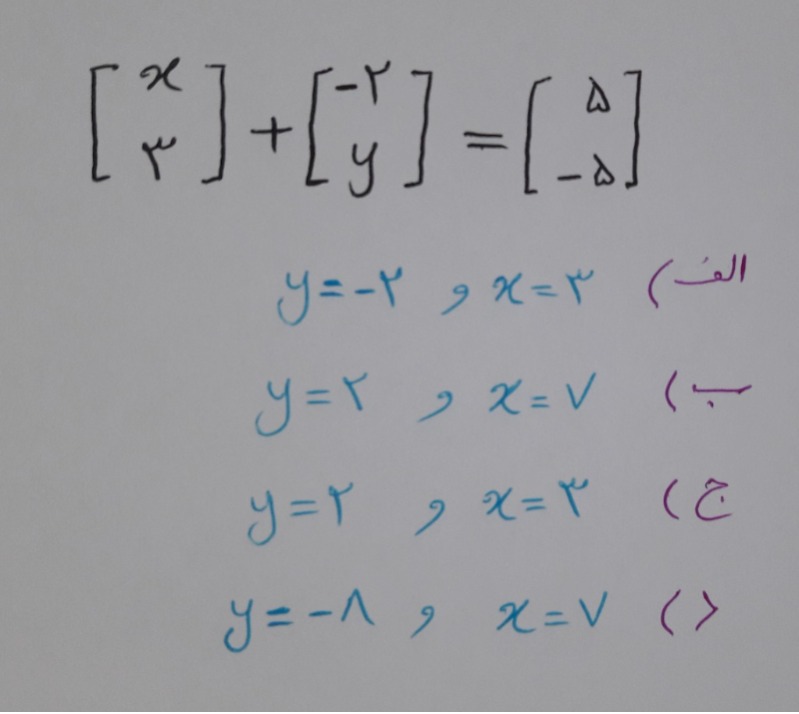 [x ۳] + [-۲ y] = [۵ -۵]
الف) x = ۳ و y = -۲
ب) x = ۷ و y = ۲
ج) x = ۳ و y = ۲
د) x = ۷ و y = -۸